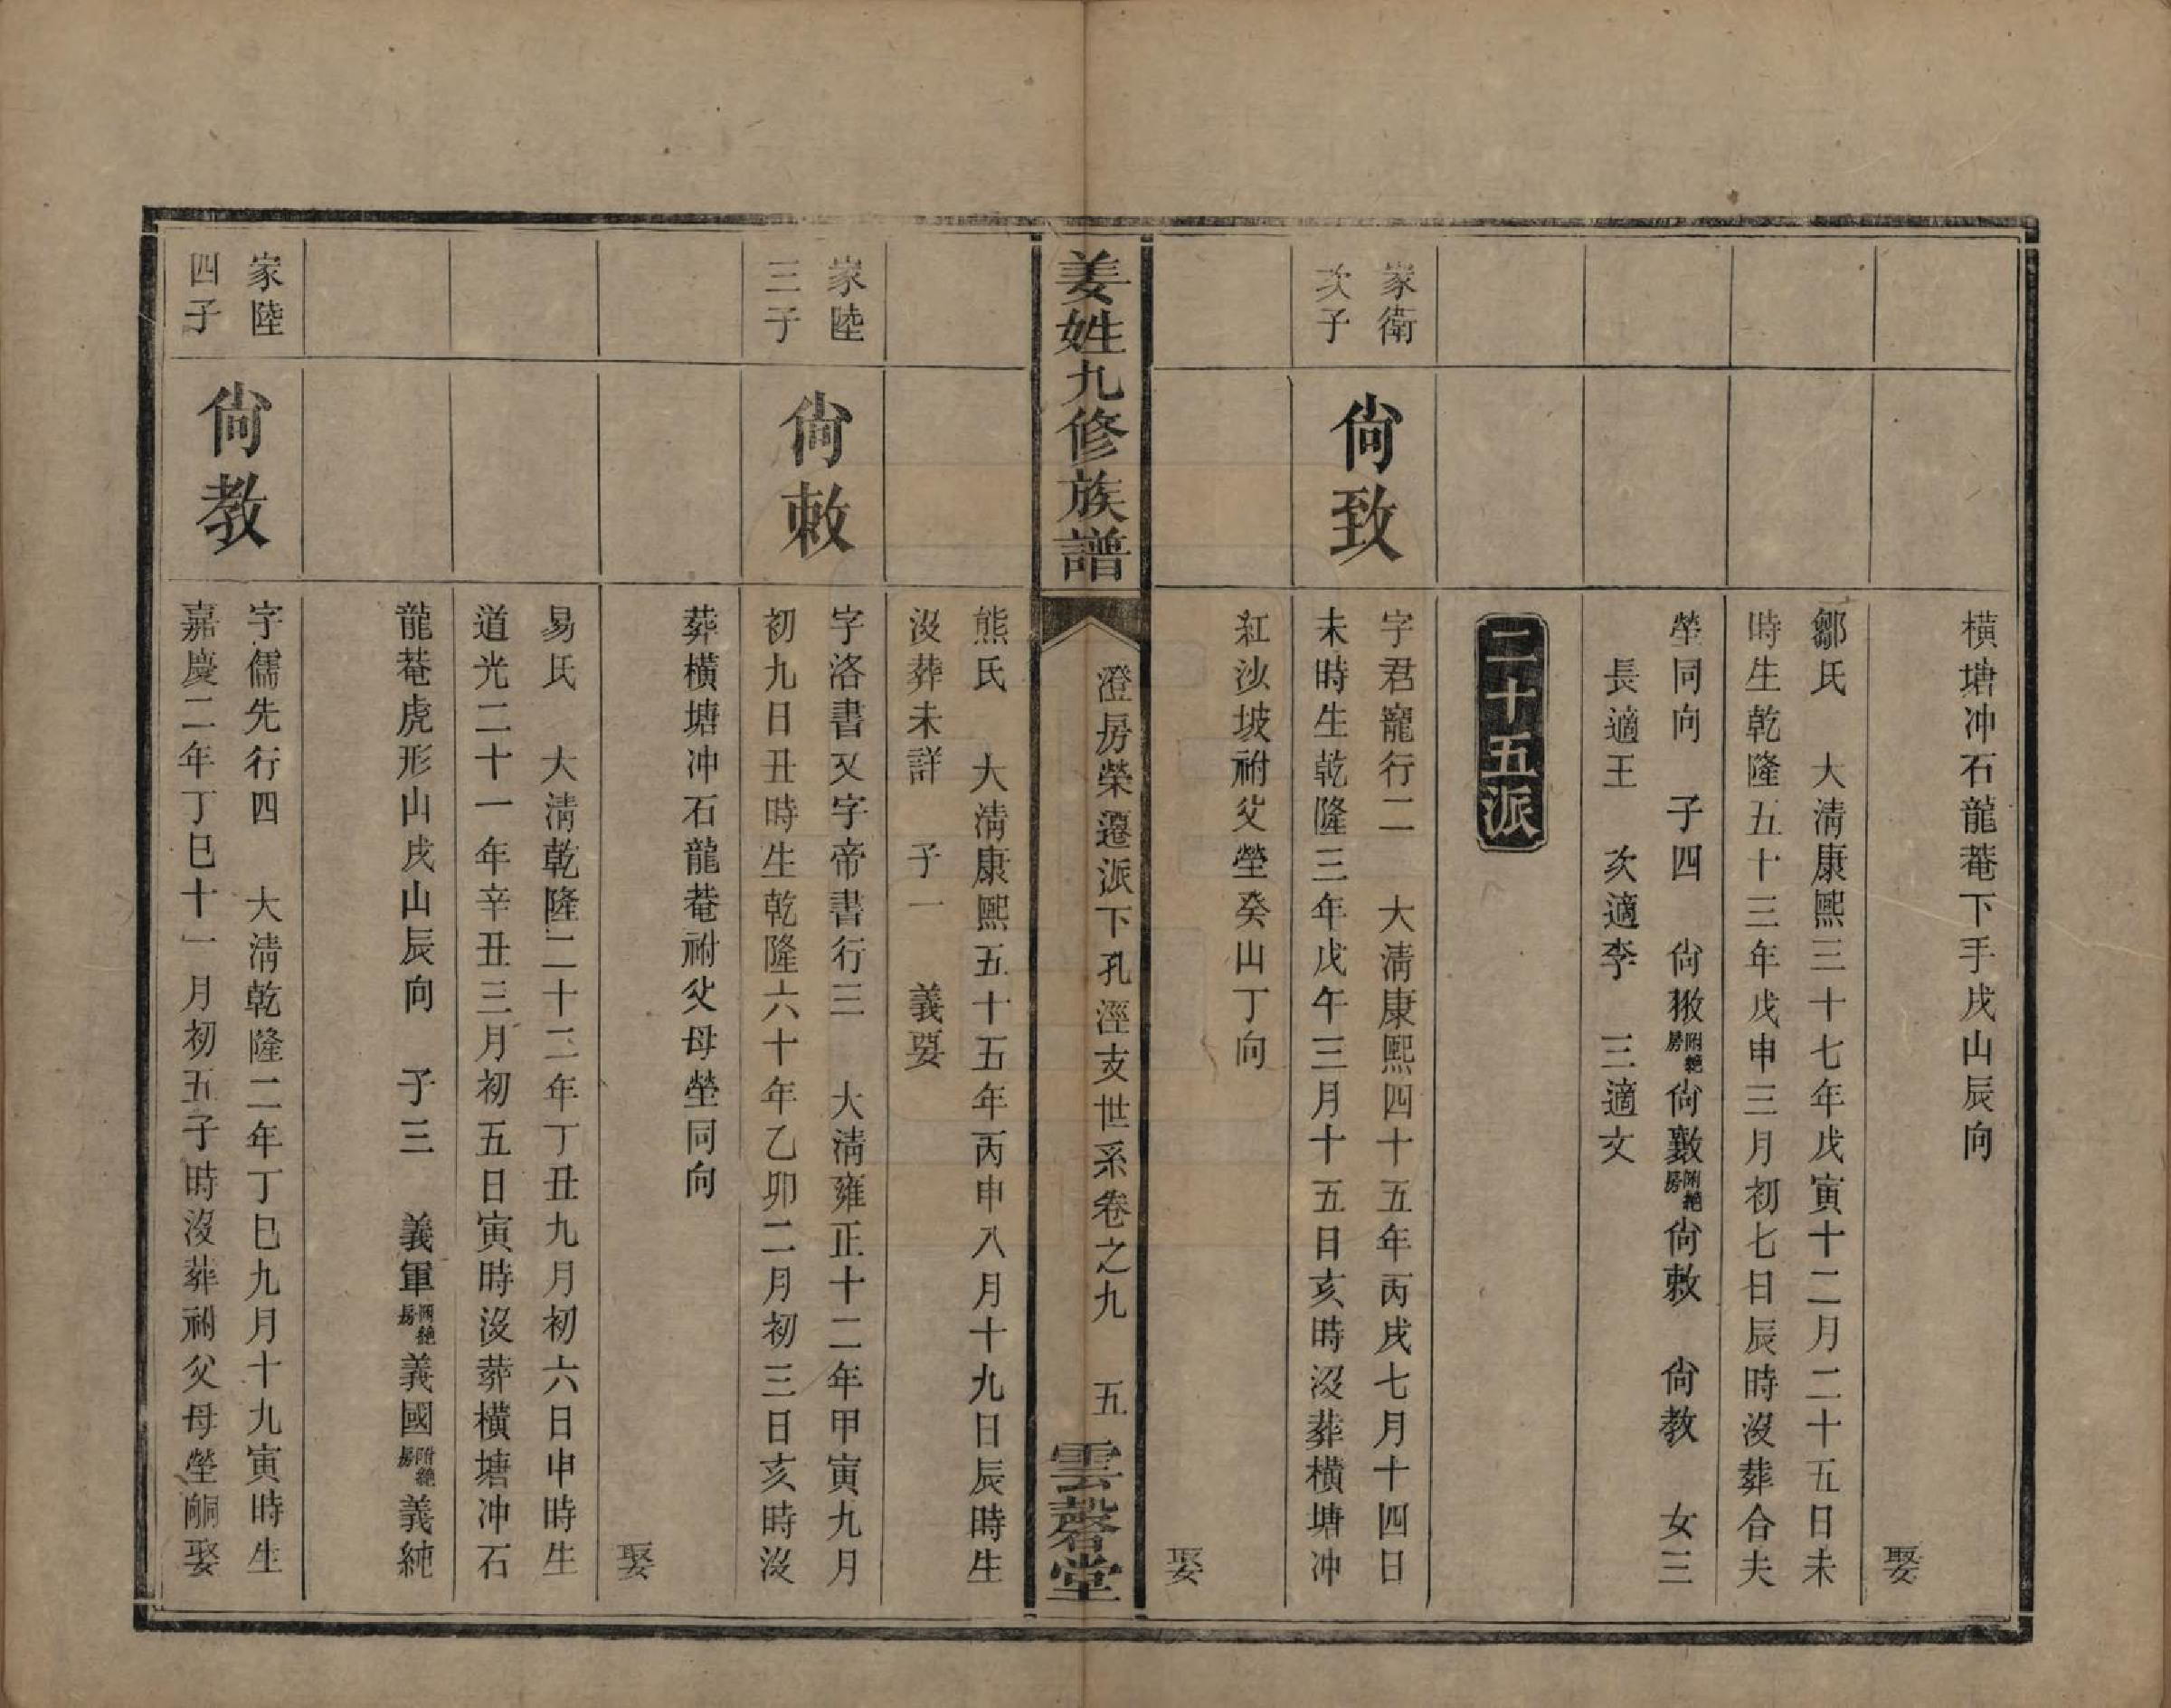 橫塘冲石龍菴下手戌山辰向
娶
鄒氏　大淸康熙三十七年戊寅十二月二十五日未
時生乾隆五十三年戊申三月初七日辰時沒葬合夫
塋同向　子四　尙㨖附絕房尙斅附絕房尙敕　尙教　女三
長適王　次適李　三適文
二十五派
家衛
次子
尙致
字君寵行二　大淸康熙四十五年丙戌七月十四日
未時生乾隆三年戊午三月十五日亥時沒葬橫塘冲
紅沙坡祔父塋癸山丁向
娶
姜姓九修族譜
澄房榮遷派下孔涇支世系卷之九　五
雲磬堂
熊氏　大淸康熙五十五年丙申八月十九日辰時生
沒葬未詳　子一　義嬰
家陸
三子
尙敕
字洛書又字帝書行三　大淸雍正十二年甲寅九月
初九日丑時生乾隆六十年乙卯二月初三日亥時沒
葬橫塘冲石龍菴祔父母塋同向
娶
易氏　大淸乾隆二十二年丁丑九月初六日申時生
道光二十一年辛丑三月初五日寅時沒葬橫塘冲石
龍菴虎形山戌山辰向　子三　義軍附絕房義國附絕房義純
家陸
四子
尙教
字儒先行四　大淸乾隆二年丁巳九月十九寅時生
嘉慶二年丁巳十一月初五子時沒葬祔父母塋峒娶